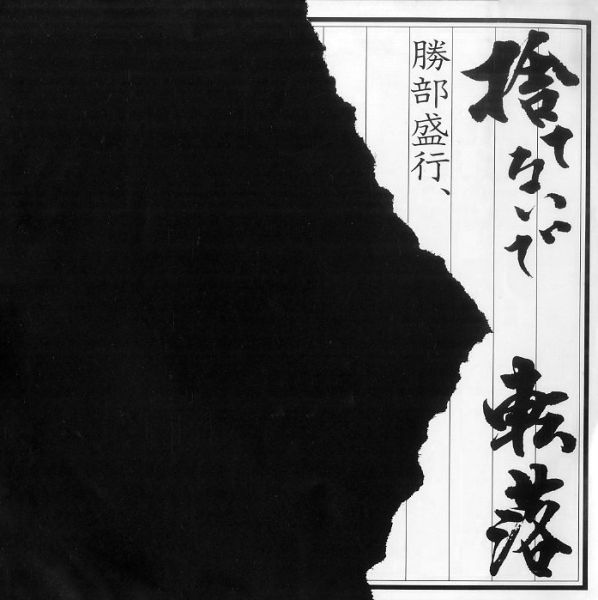 捨てないで　転落
勝部盛行、